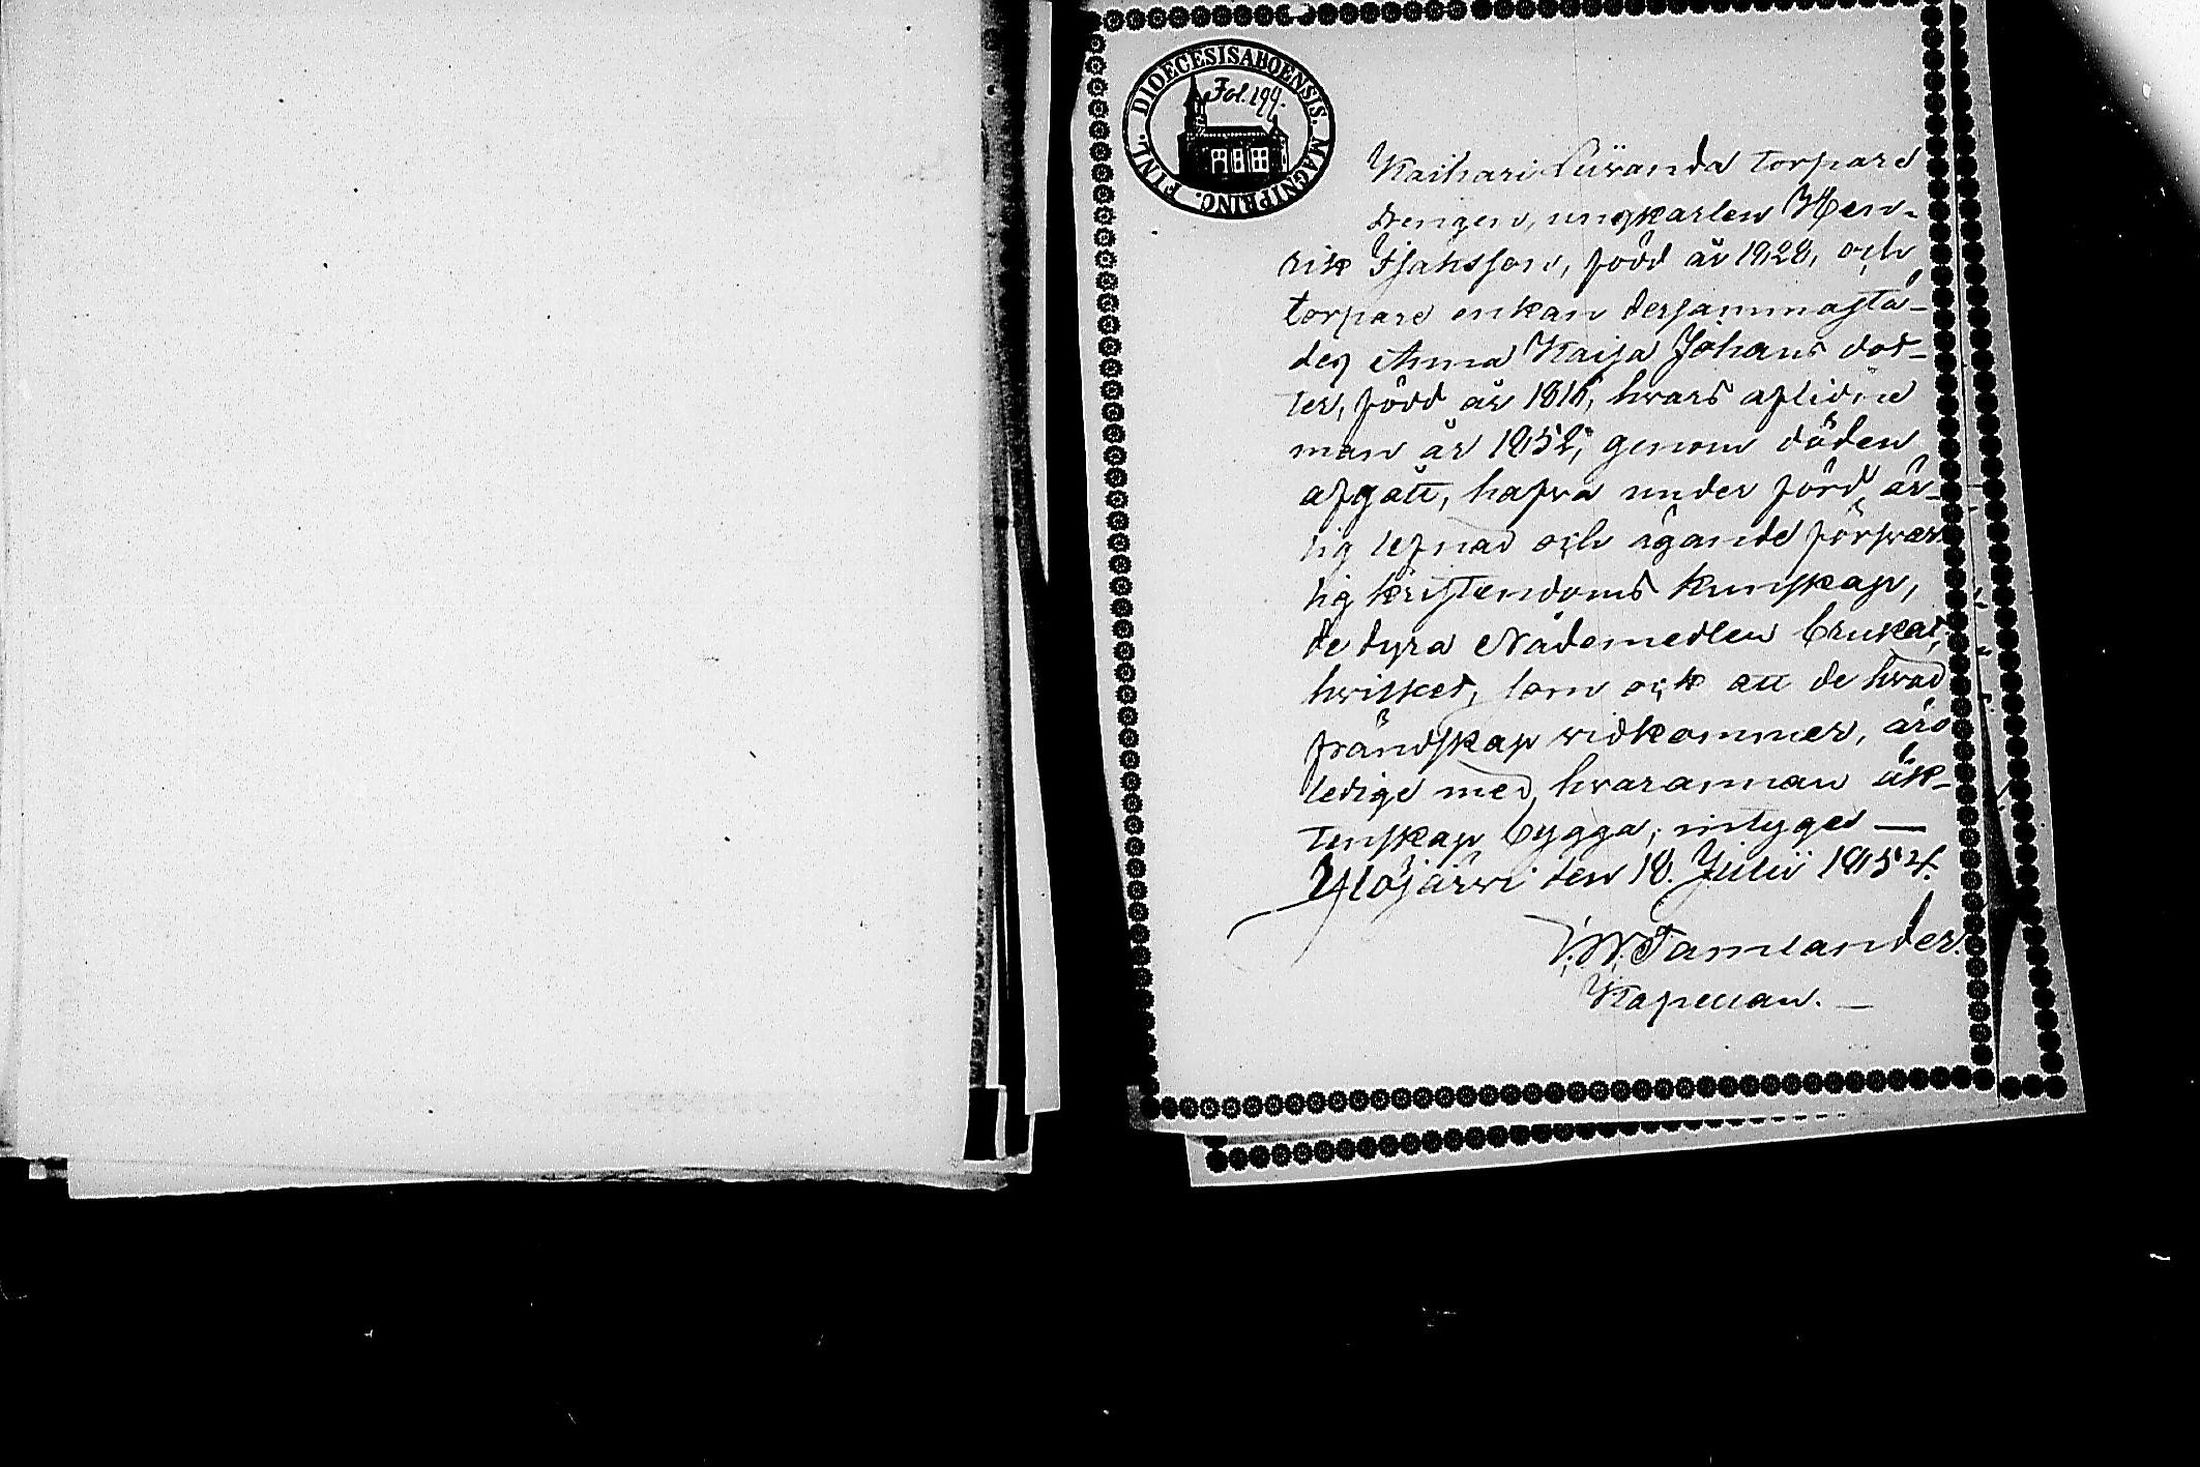 DIOECESISABOENSIS. MAGNIPRINC. FINL.
Fol. 199.
Kaihari torpare
drengen, ungkarlen Hen-
rik Isaksson, född år 1828, och
torpare enkan dersammastä-
des Anna Kaisa Johans dot-
ter, född år 1816, hvars aflidne
man år 1852, genom döden
afgått, hafva under förd är-
lig lefnad och ägande försvar-
lig kristendoms kunskap,
de dyra Nådemedlen brukat,
hvilket, som ock att de hvad
frändskap vidkommer, äro
ledige med hvarannan äk-
tenskap bygga, intyges —
Ylöjärvi den 18. Julii 1854.
Tamlander.
Kapellan. —